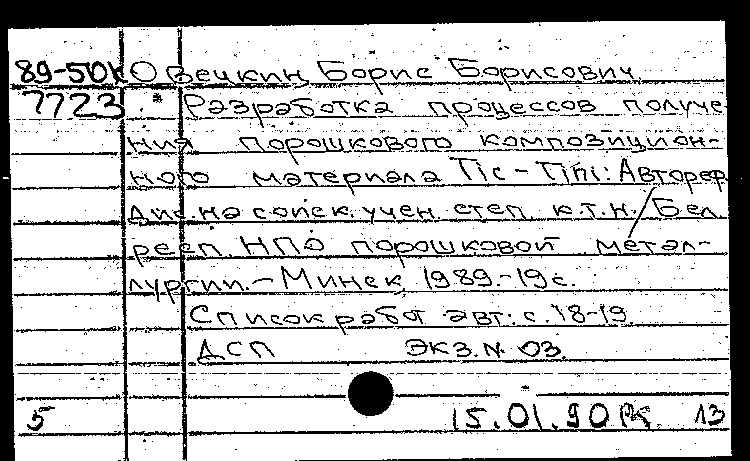 89-50к Овецкин, Борис Борисович
7723 Разработка процессов получе
ния порошкового композицион-
ного материала TiC - TiNi: Автореф.
дис. на соиск. учен. степ. к.т.н. / Бел.
респ. НПО порошковой метал-
лургии. - Минск, 1989. - 19 с.
Список работ авт.: с. 18-19.
ДСП Экз. N. 03.
5 15.01.90 13